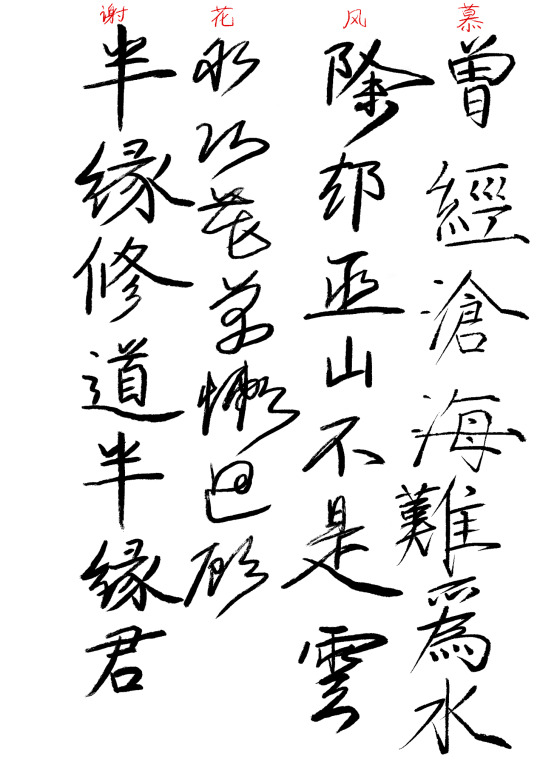 慕风花谢
曾經滄海難爲水
除却巫山不是雲
取次花叢懶迴顧
半缘修道半缘君